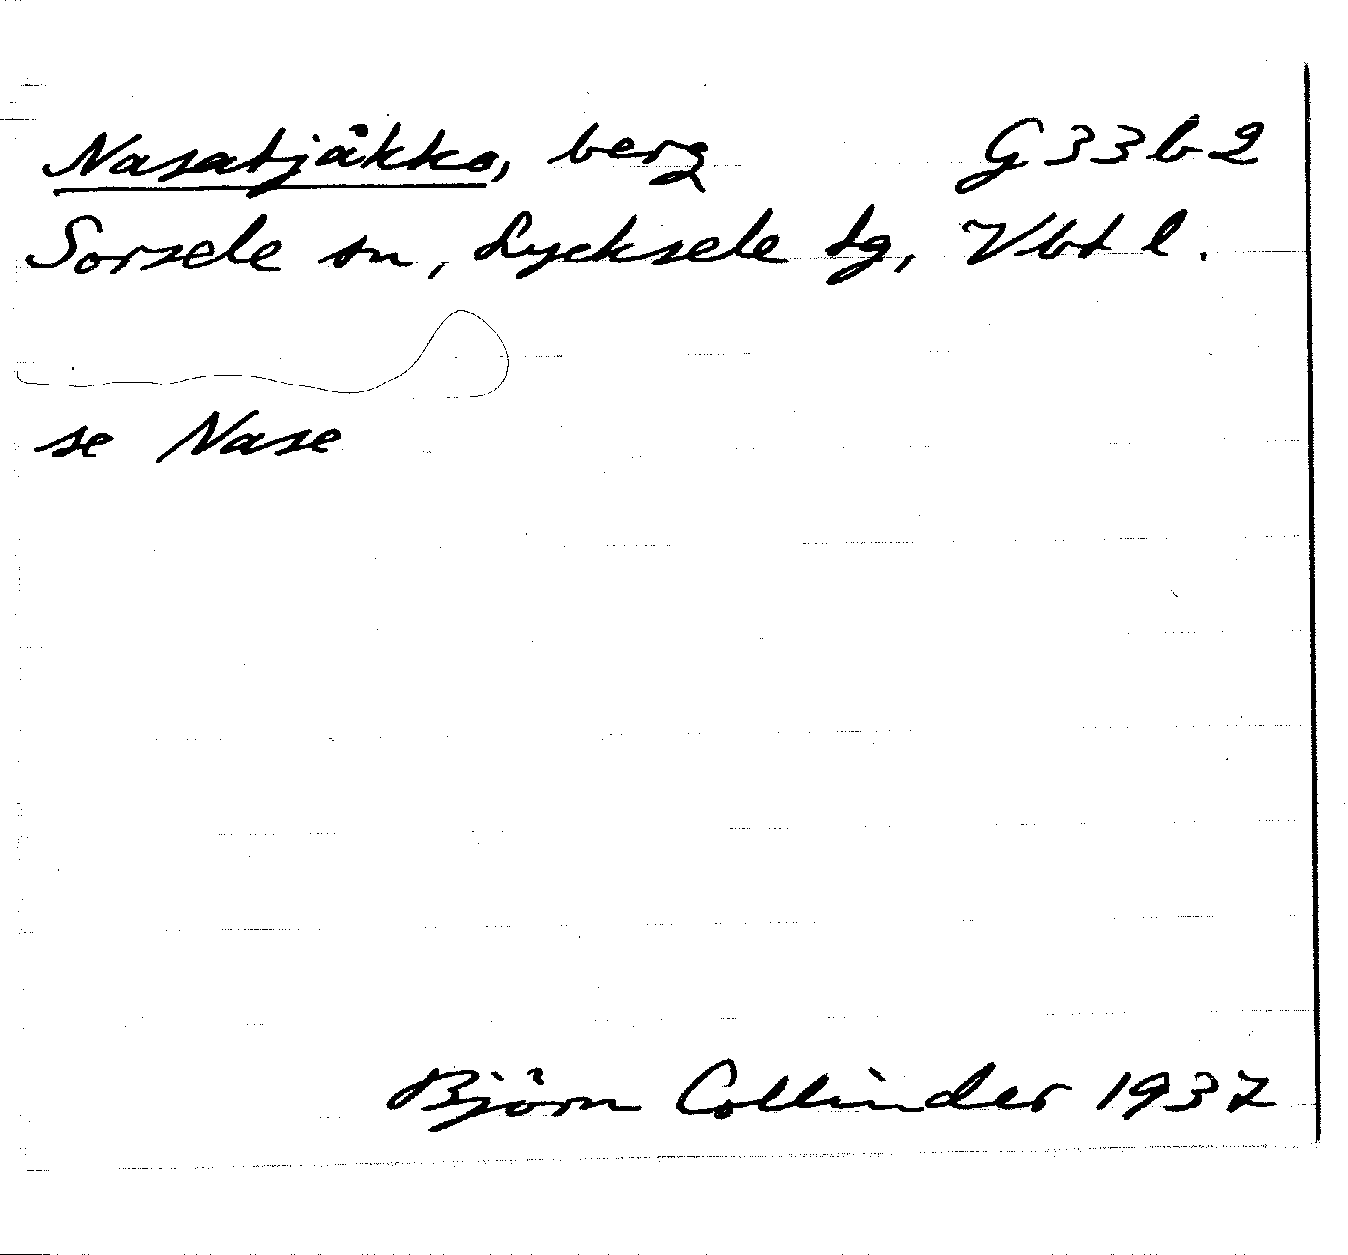 Nasatjåkko, berg G33b2
Sorsele sn, Lycksele tg, Vbt l.
se Nase
Björn Collinder 1937